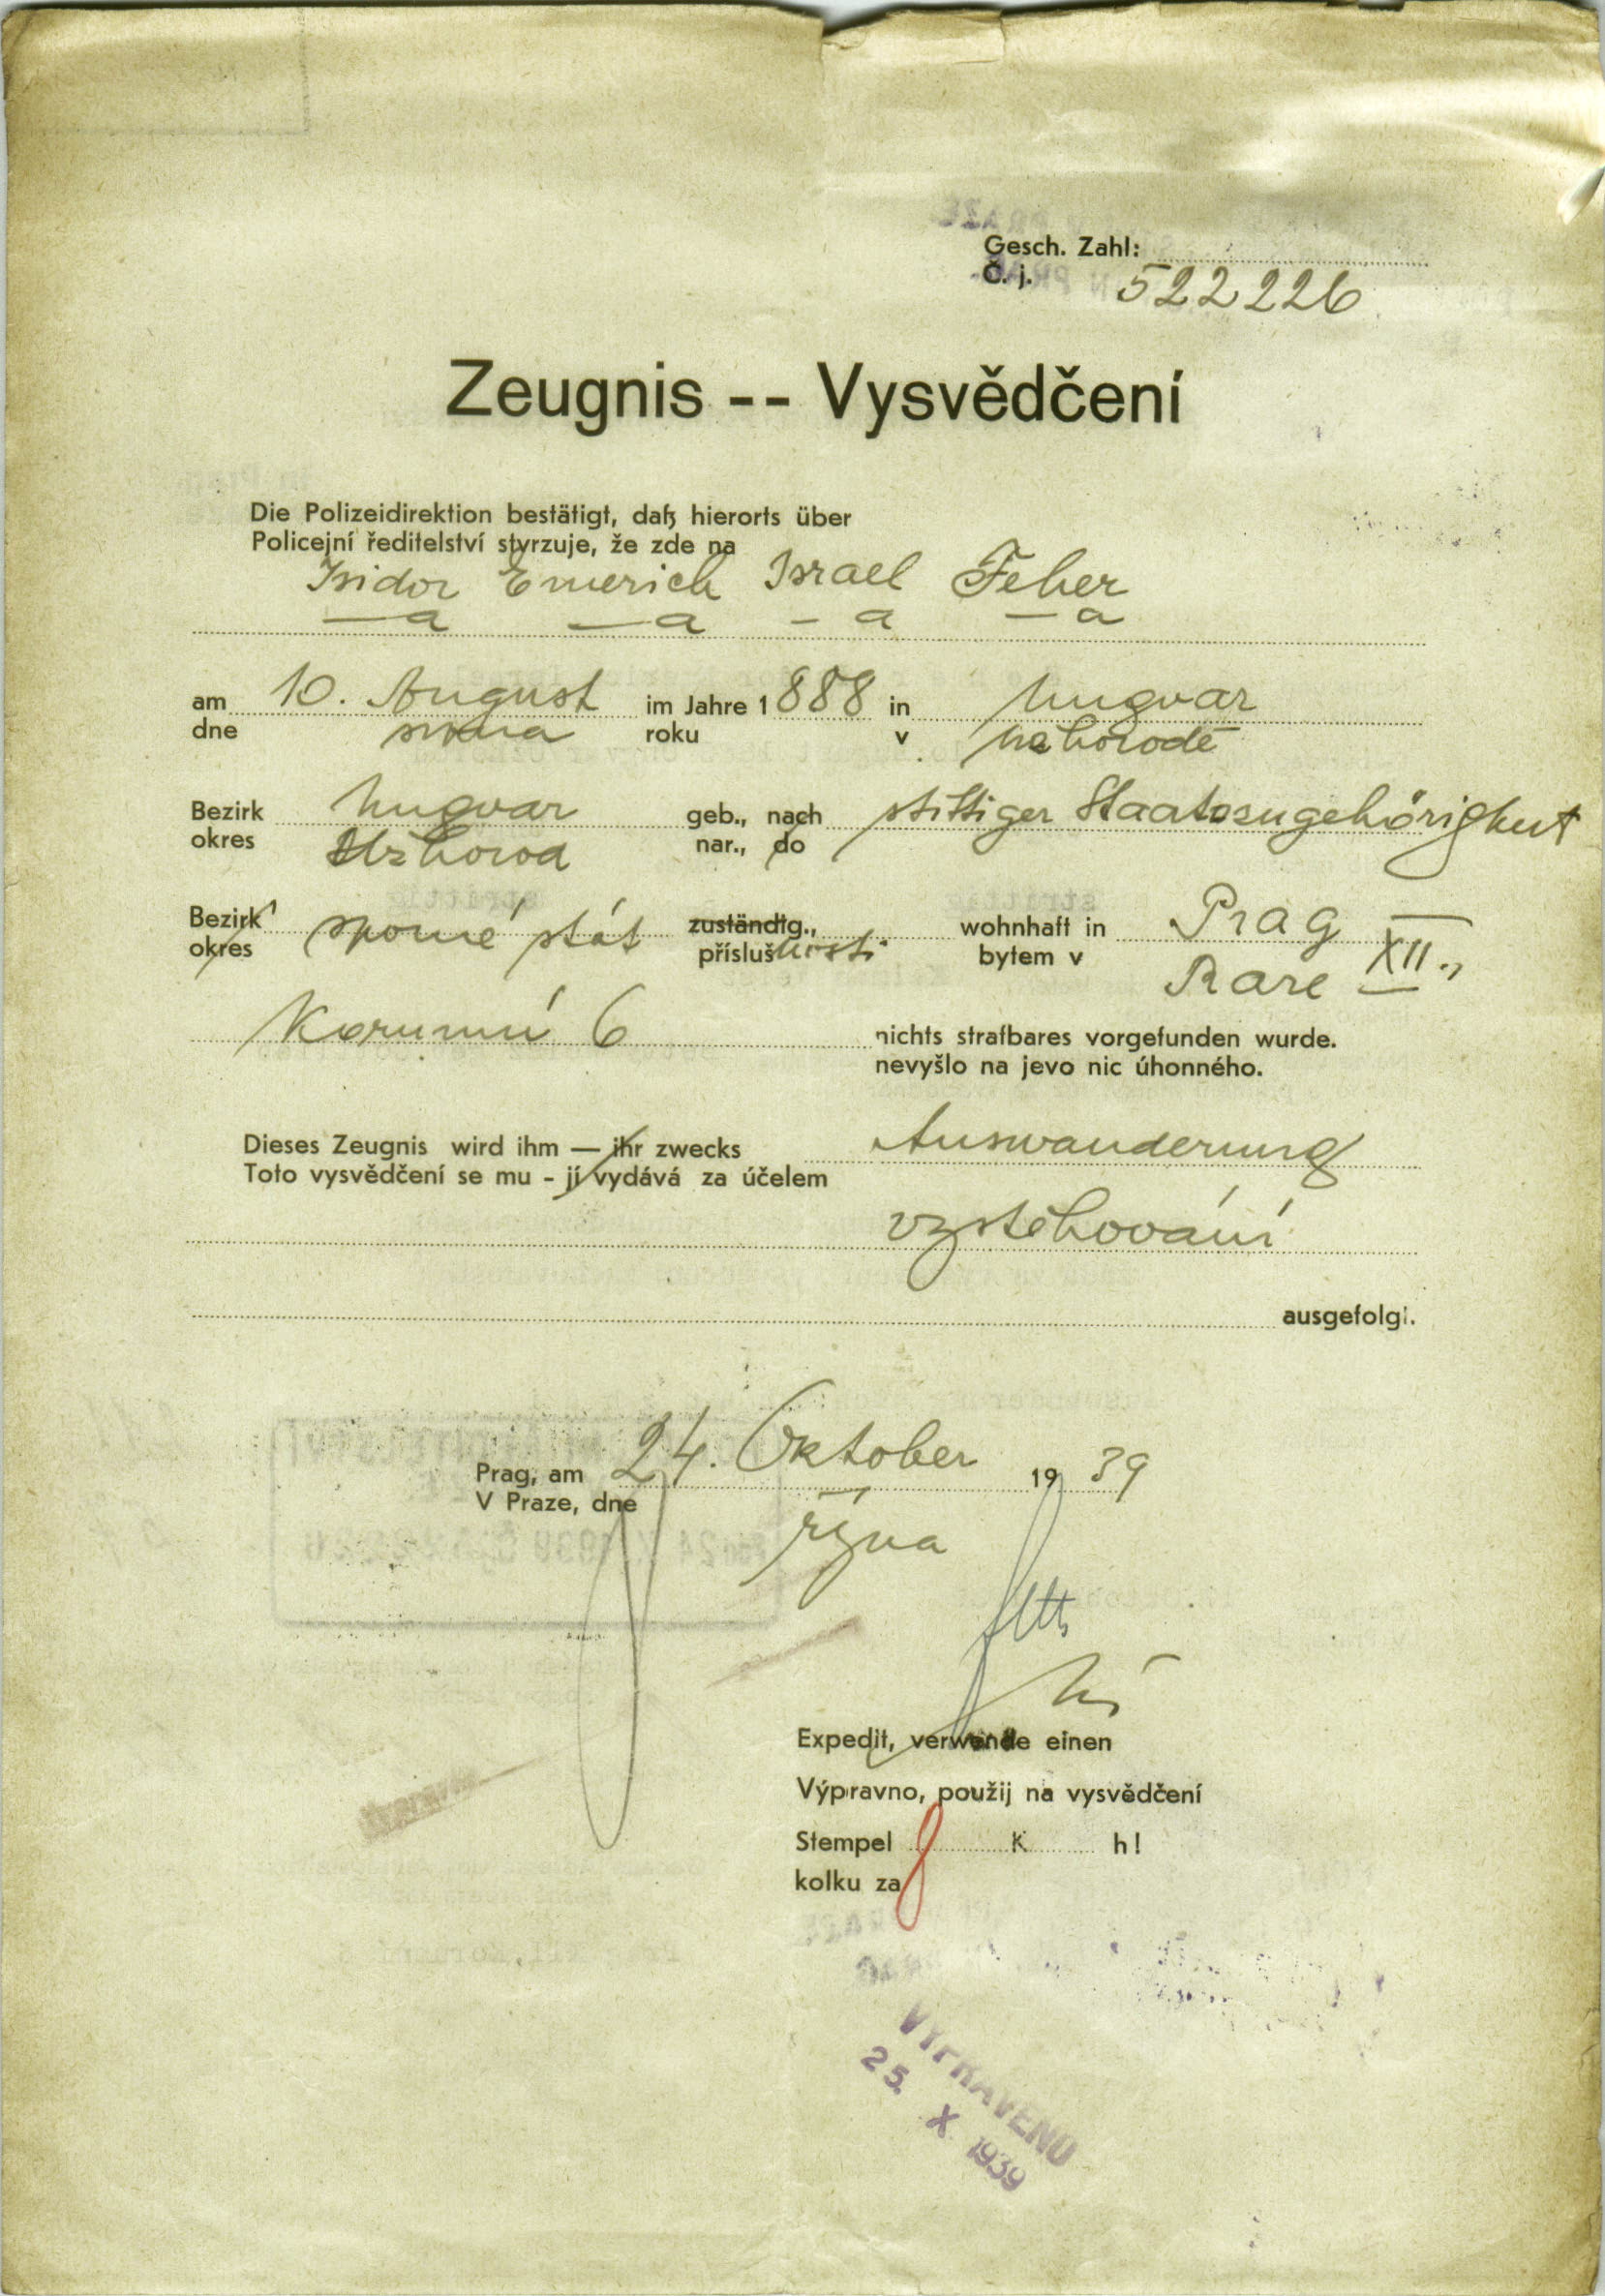 Gesch. Zahl:
Č. j. 522226
Zeugnis -- Vysvědčení
Die Polizeidirektion bestätigt, daß hierorts über
Policejní ředitelství stvrzuje, že zde na
Isidor Emerich Israel Feher
— a — a – a – a
am 10. August im Jahre 1888 in Ungvar
dne srpna roku v Užhorodě
Bezirk Ungvar geb., nach strittiger Staatszugehörigkeit
okres Užhorod nar., do
Bezirk sporné stát zuständig., wohnhaft in Prag
okres příslušnosti bytem v Praze XII.,
Korunní 6 nichts strafbares vorgefunden wurde.
nevyšlo na jevo nic úhonného.
Dieses Zeugnis wird ihm — ihr zwecks Auswanderung
Toto vysvědčení se mu - jí vydává za účelem
vystěhování
ausgefolgt.
Prag, am 24. Oktober 1939
V Praze, dne října
Expedit, verwende einen
Výpravno, použij na vysvědčení
Stempel K h!
kolku za
VYPRAVENO
25. X 1939